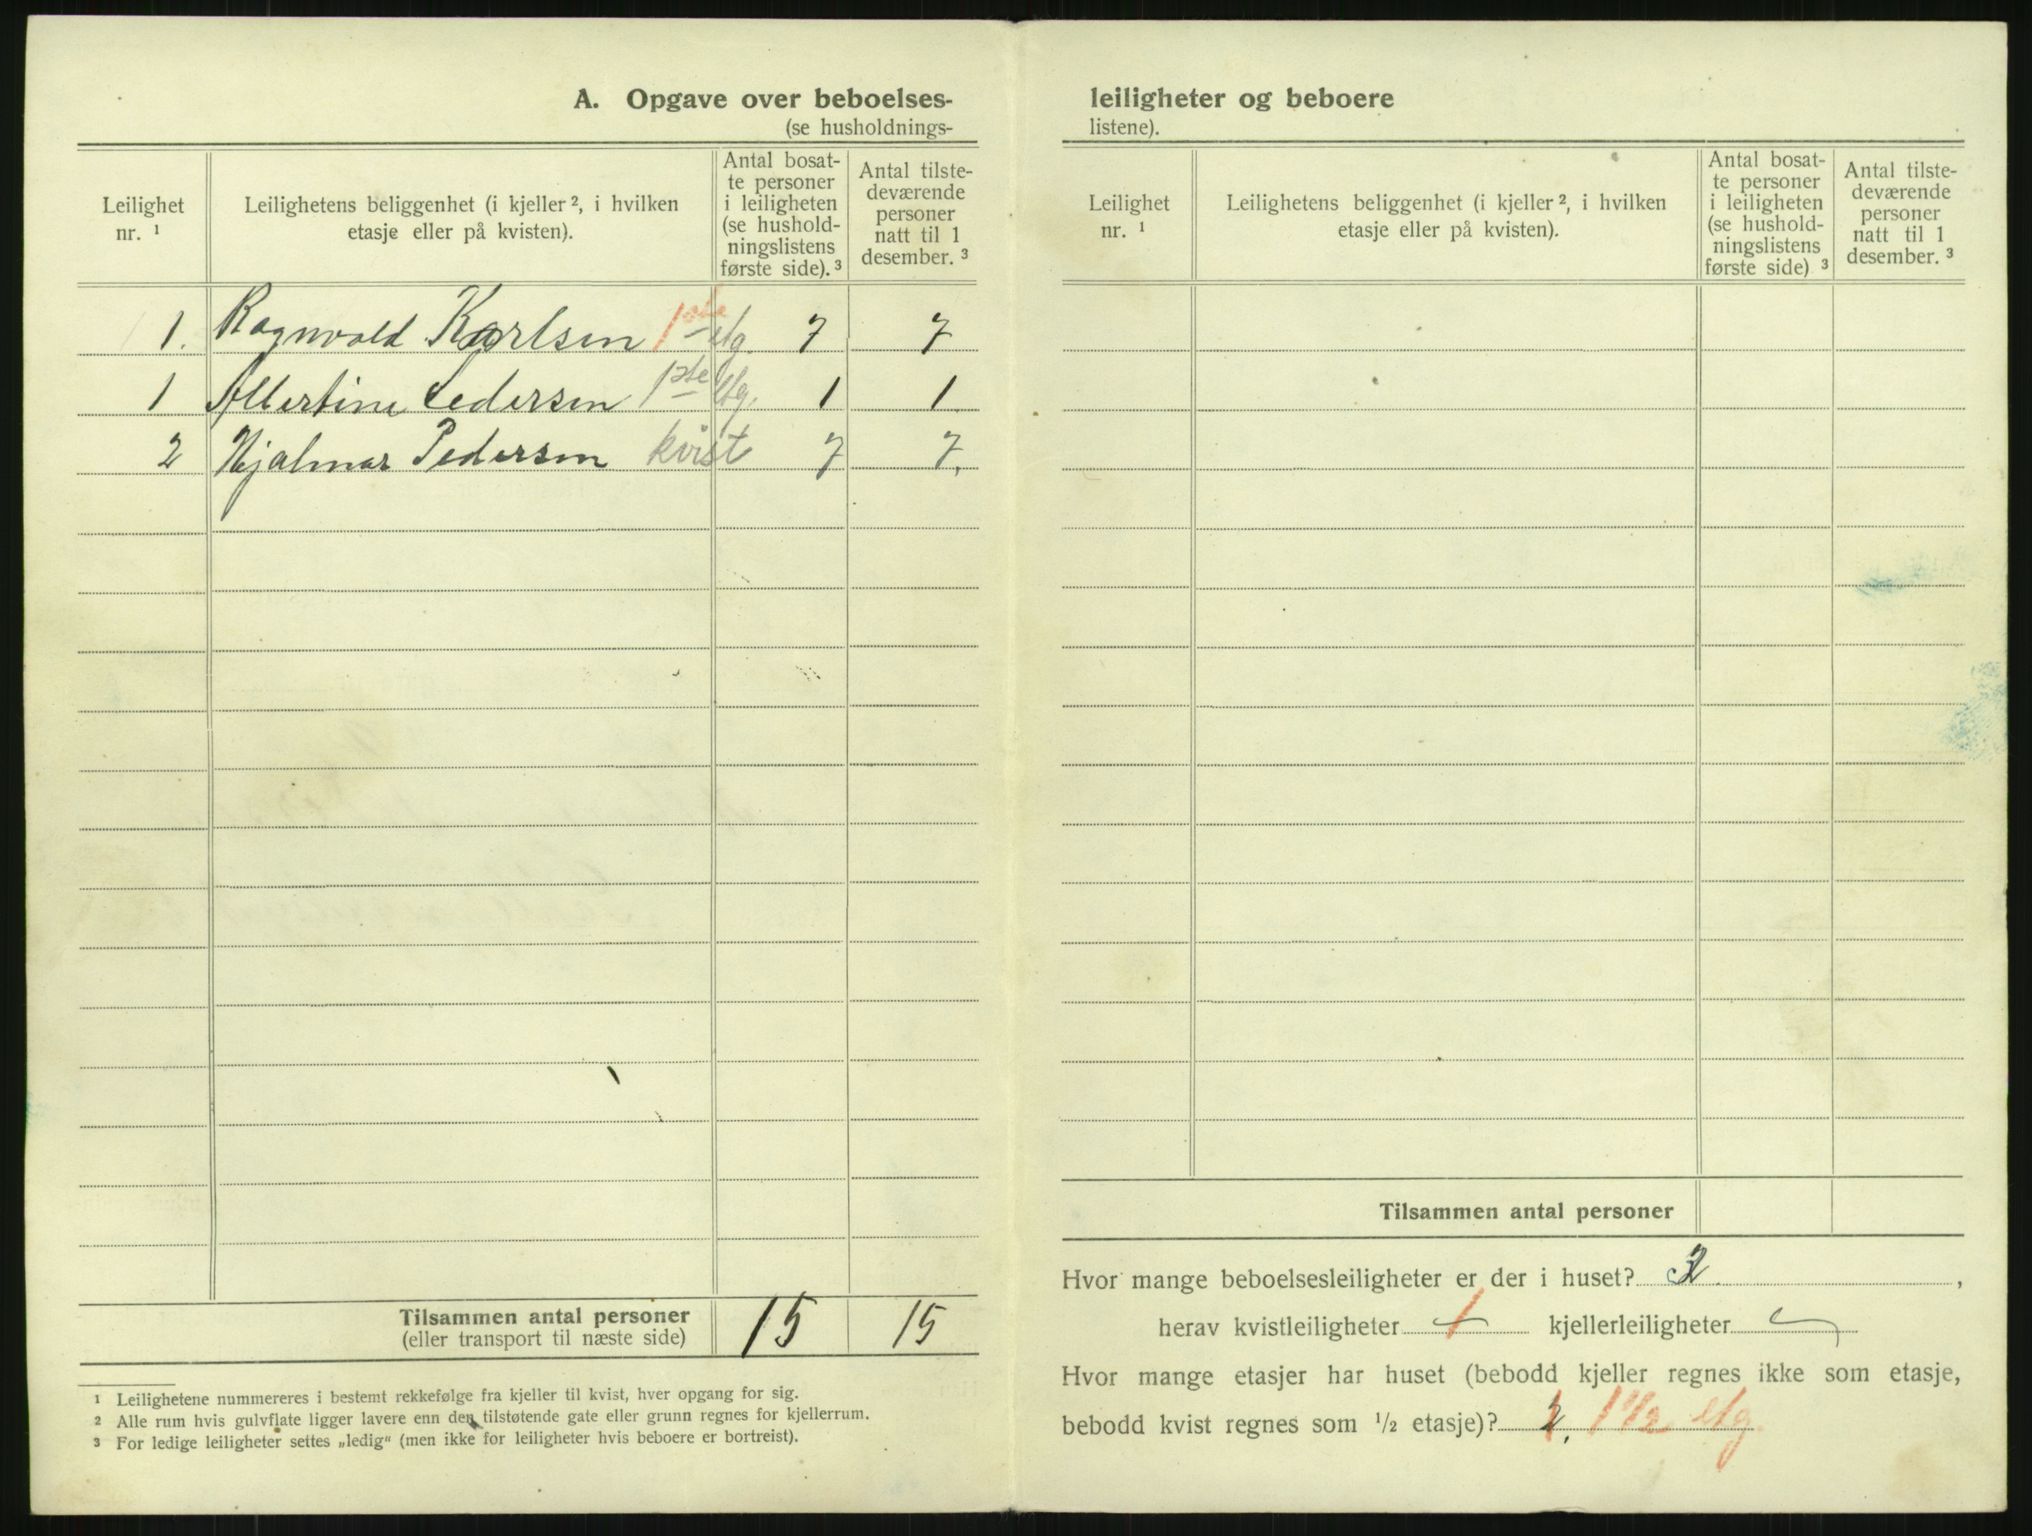 A. Opgave over beboelses-
(se husholdnings-
Leilighet nr. ¹
Leilighetens beliggenhet (i kjeller ², i hvilken
etasje eller på kvisten).
Antal bosat-
te personer
i leiligheten
(se hushold-
ningslistens
første side). ³
Antal tilste-
deværende
personer
natt til 1
desember. ³
1. Ragnvald Karlsen 1ste etg. 7 7
1 Albertine Pedersen 1ste etg. 1 1.
2 Hjalmar Pedersen kvist 7 7.
Tilsammen antal personer 15 15
(eller transport til næste side)
¹ Leilighetene nummereres i bestemt rekkefølge fra kjeller til kvist, hver opgang for sig.
² Alle rum hvis gulvflate ligger lavere enn den tilstøtende gate eller grunn regnes for kjellerrum.
³ For ledige leiligheter settes „ledig“ (men ikke for leiligheter hvis beboere er bortreist).
leiligheter og beboere
listene).
Leilighet nr. ¹
Leilighetens beliggenhet (i kjeller ², i hvilken
etasje eller på kvisten).
Antal bosat-
te personer
i leiligheten
(se hushold-
ningslistens
første side) ³
Antal tilste-
deværende
personer
natt til 1
desember. ³
Tilsammen antal personer
Hvor mange beboelsesleiligheter er der i huset? 2.,
herav kvistleiligheter 1 kjellerleiligheter
Hvor mange etasjer har huset (bebodd kjeller regnes ikke som etasje,
bebodd kvist regnes som ½ etasje)? 2. 1 1/2 etg.